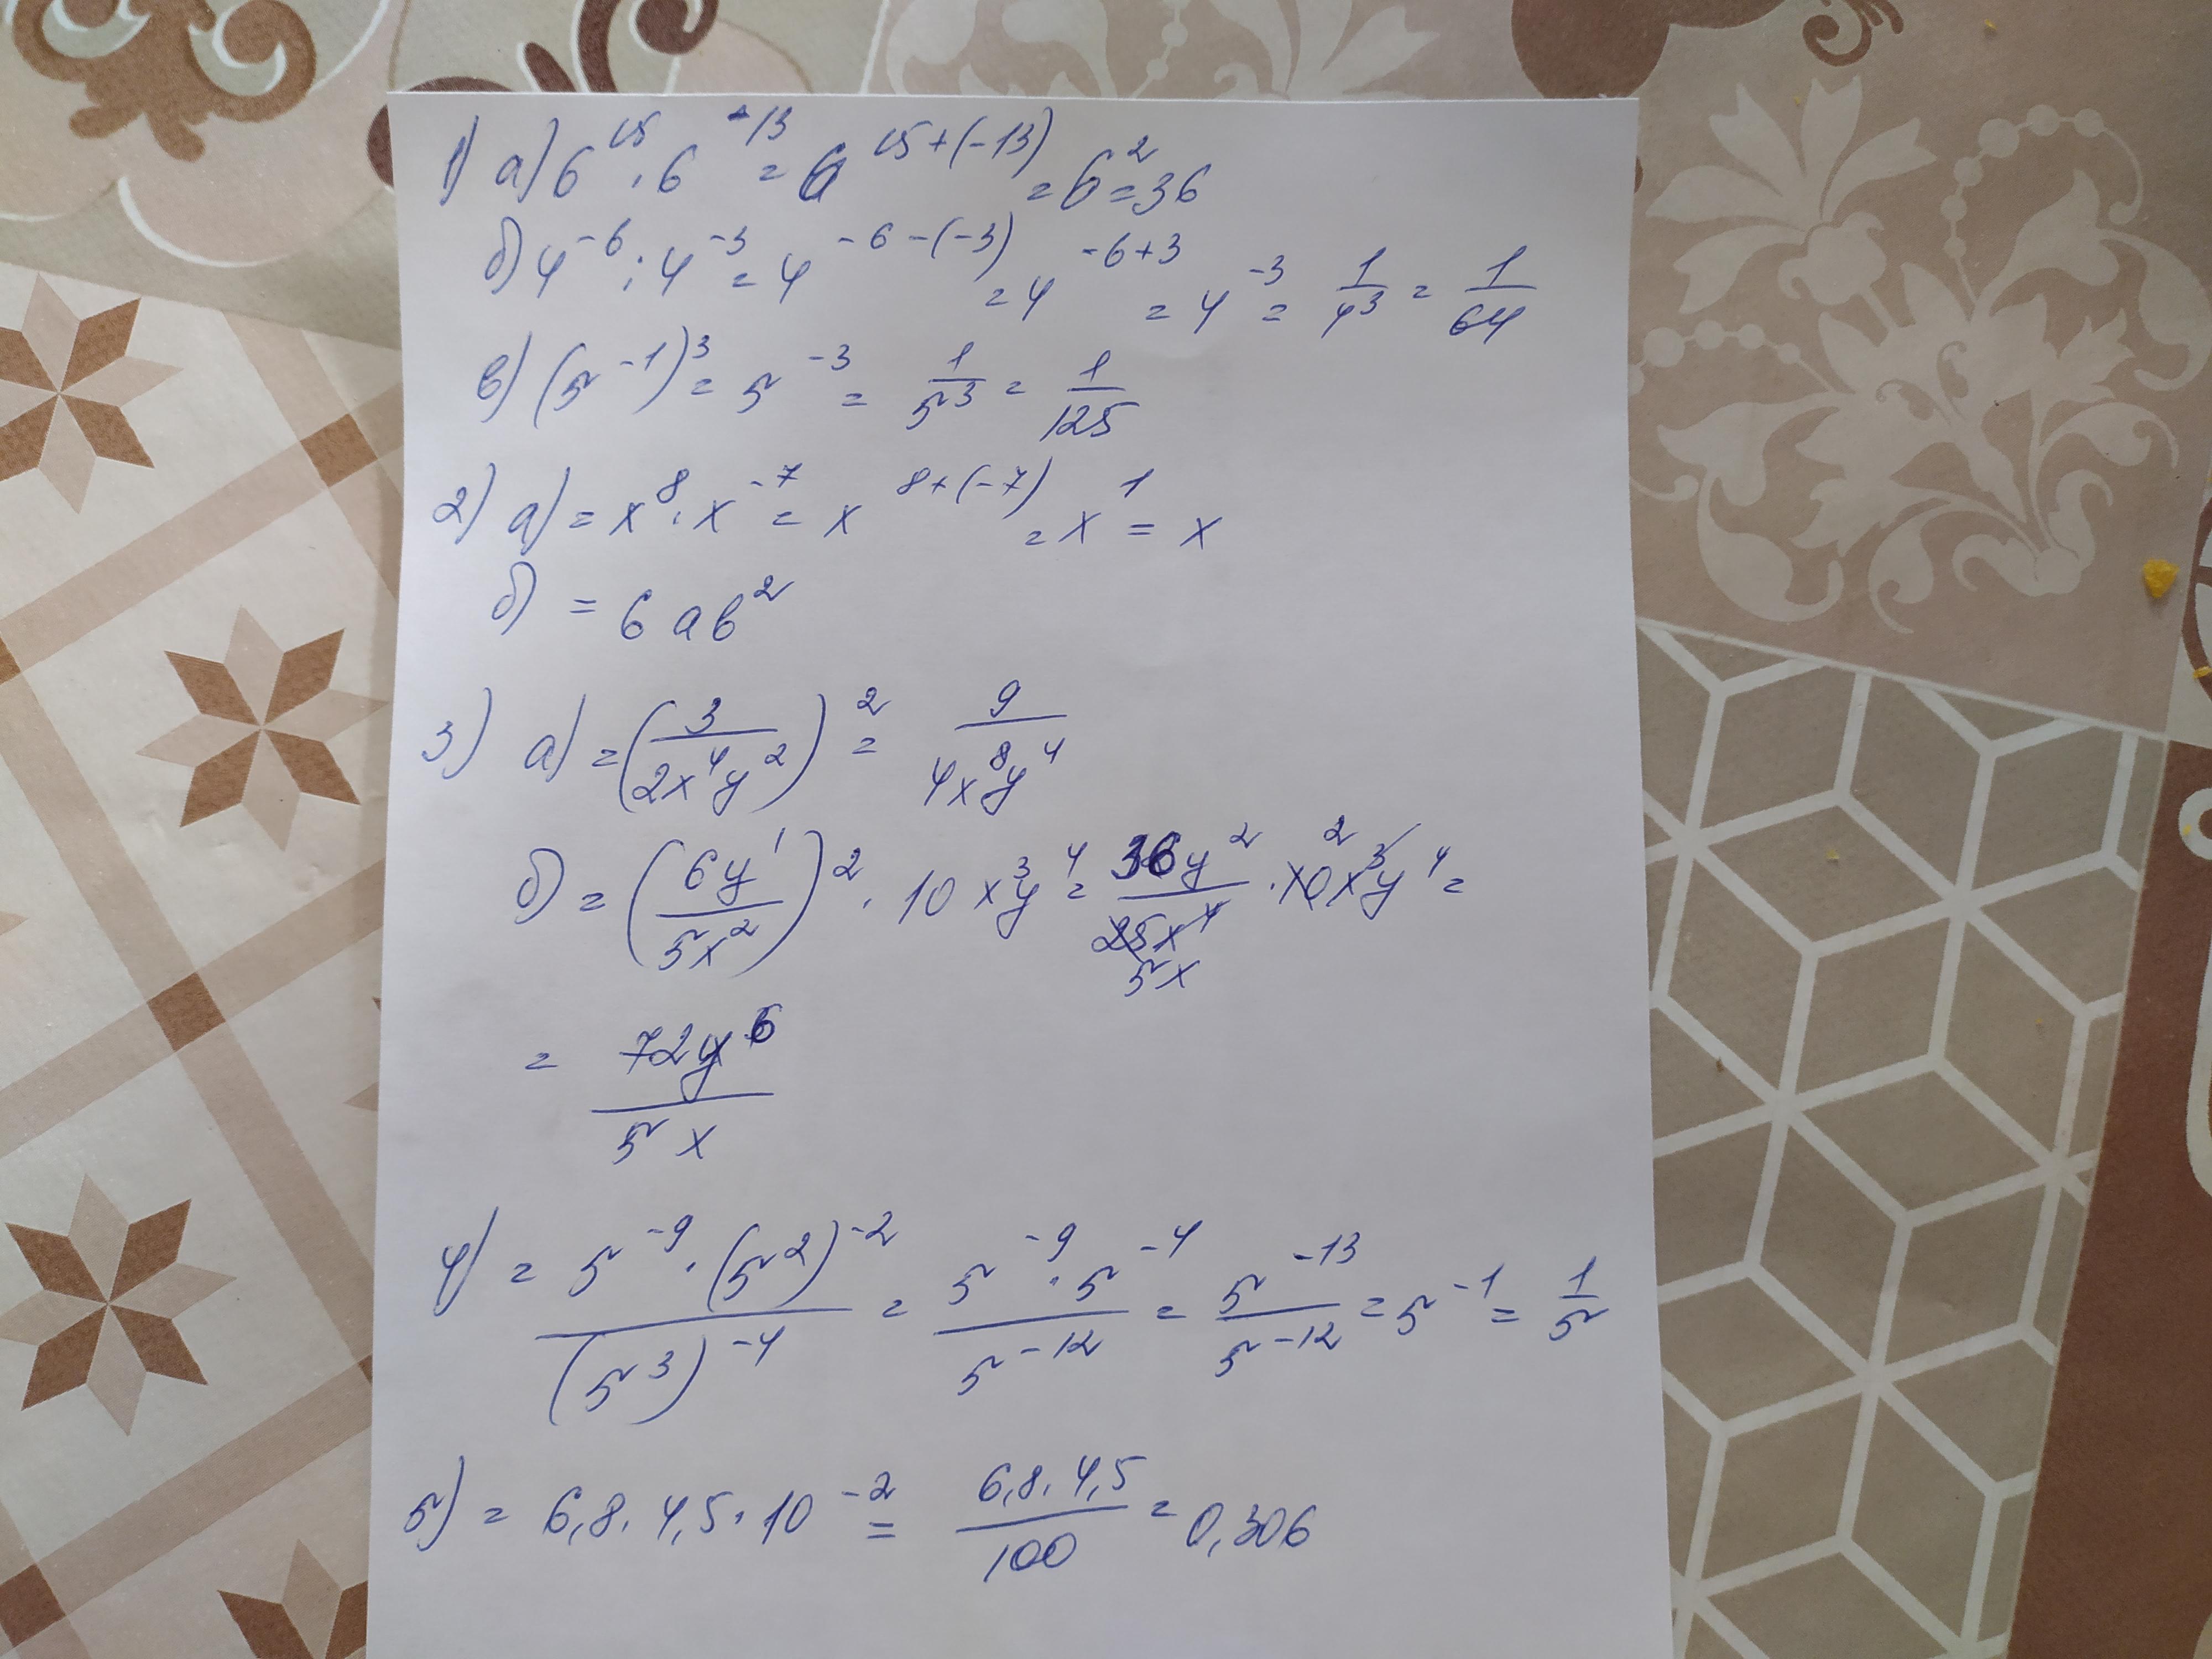 1) а) 6^15 · 6^-13 = 6^15+(-13) = 6^2 = 36
б) 4^-6 : 4^-3 = 4^-6-(-3) = 4^-6+3 = 4^-3 = 1/4^3 = 1/64
в) (5^-1)^3 = 5^-3 = 1/5^3 = 1/125
2) а) = x^8 · x^-7 = x^8+(-7) = x^1 = x
б) = 6ab^2
3) а) = (3/2x^4y^2)^2 = 9/4x^8y^4
б) = (6y^1/5x^2)^2 · 10x^3y^4 = 36y^2/25x^4 5x · 10 2 x^3y^4 =
= 72y^6/5x
4) = 5^-9 · (5^2)^-2/(5^3)^-4 = 5^-9 · 5^-4/5^-12 = 5^-13/5^-12 = 5^-1 = 1/5
5) = 6,8 · 4,5 · 10^-2 = 6,8 · 4,5/100 = 0,306